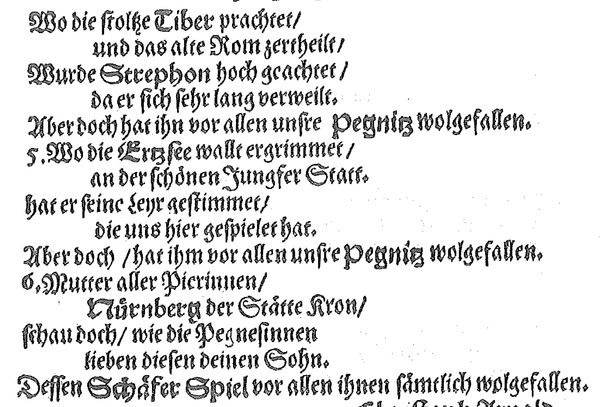 Wo die stoltze Tiber prachtet/
und das alte Rom zertheilt/
Wurde Strephon hoch geachtet/
da er sich sehr lang verweilt.
Aber doch hat ihn vor allen unsre Pegnitz wolgefallen.
5. Wo die Ertzsee wallt ergrimmet/
an der schönen Jungfer Statt.
hat er seine Leyr gestimmet/
die uns hier gespielet hat.
Aber doch /hat ihm vor allen unsre Pegnitz wolgefallen.
6. Mutter aller Pierinnen/
Nürnberg der Stätte Kron/
schau doch/ wie die Pegnesinnen
lieben diesen deinen Sohn.
Dessen Schäfer Spiel vor allen ihnen sämtlich wolgefallen.